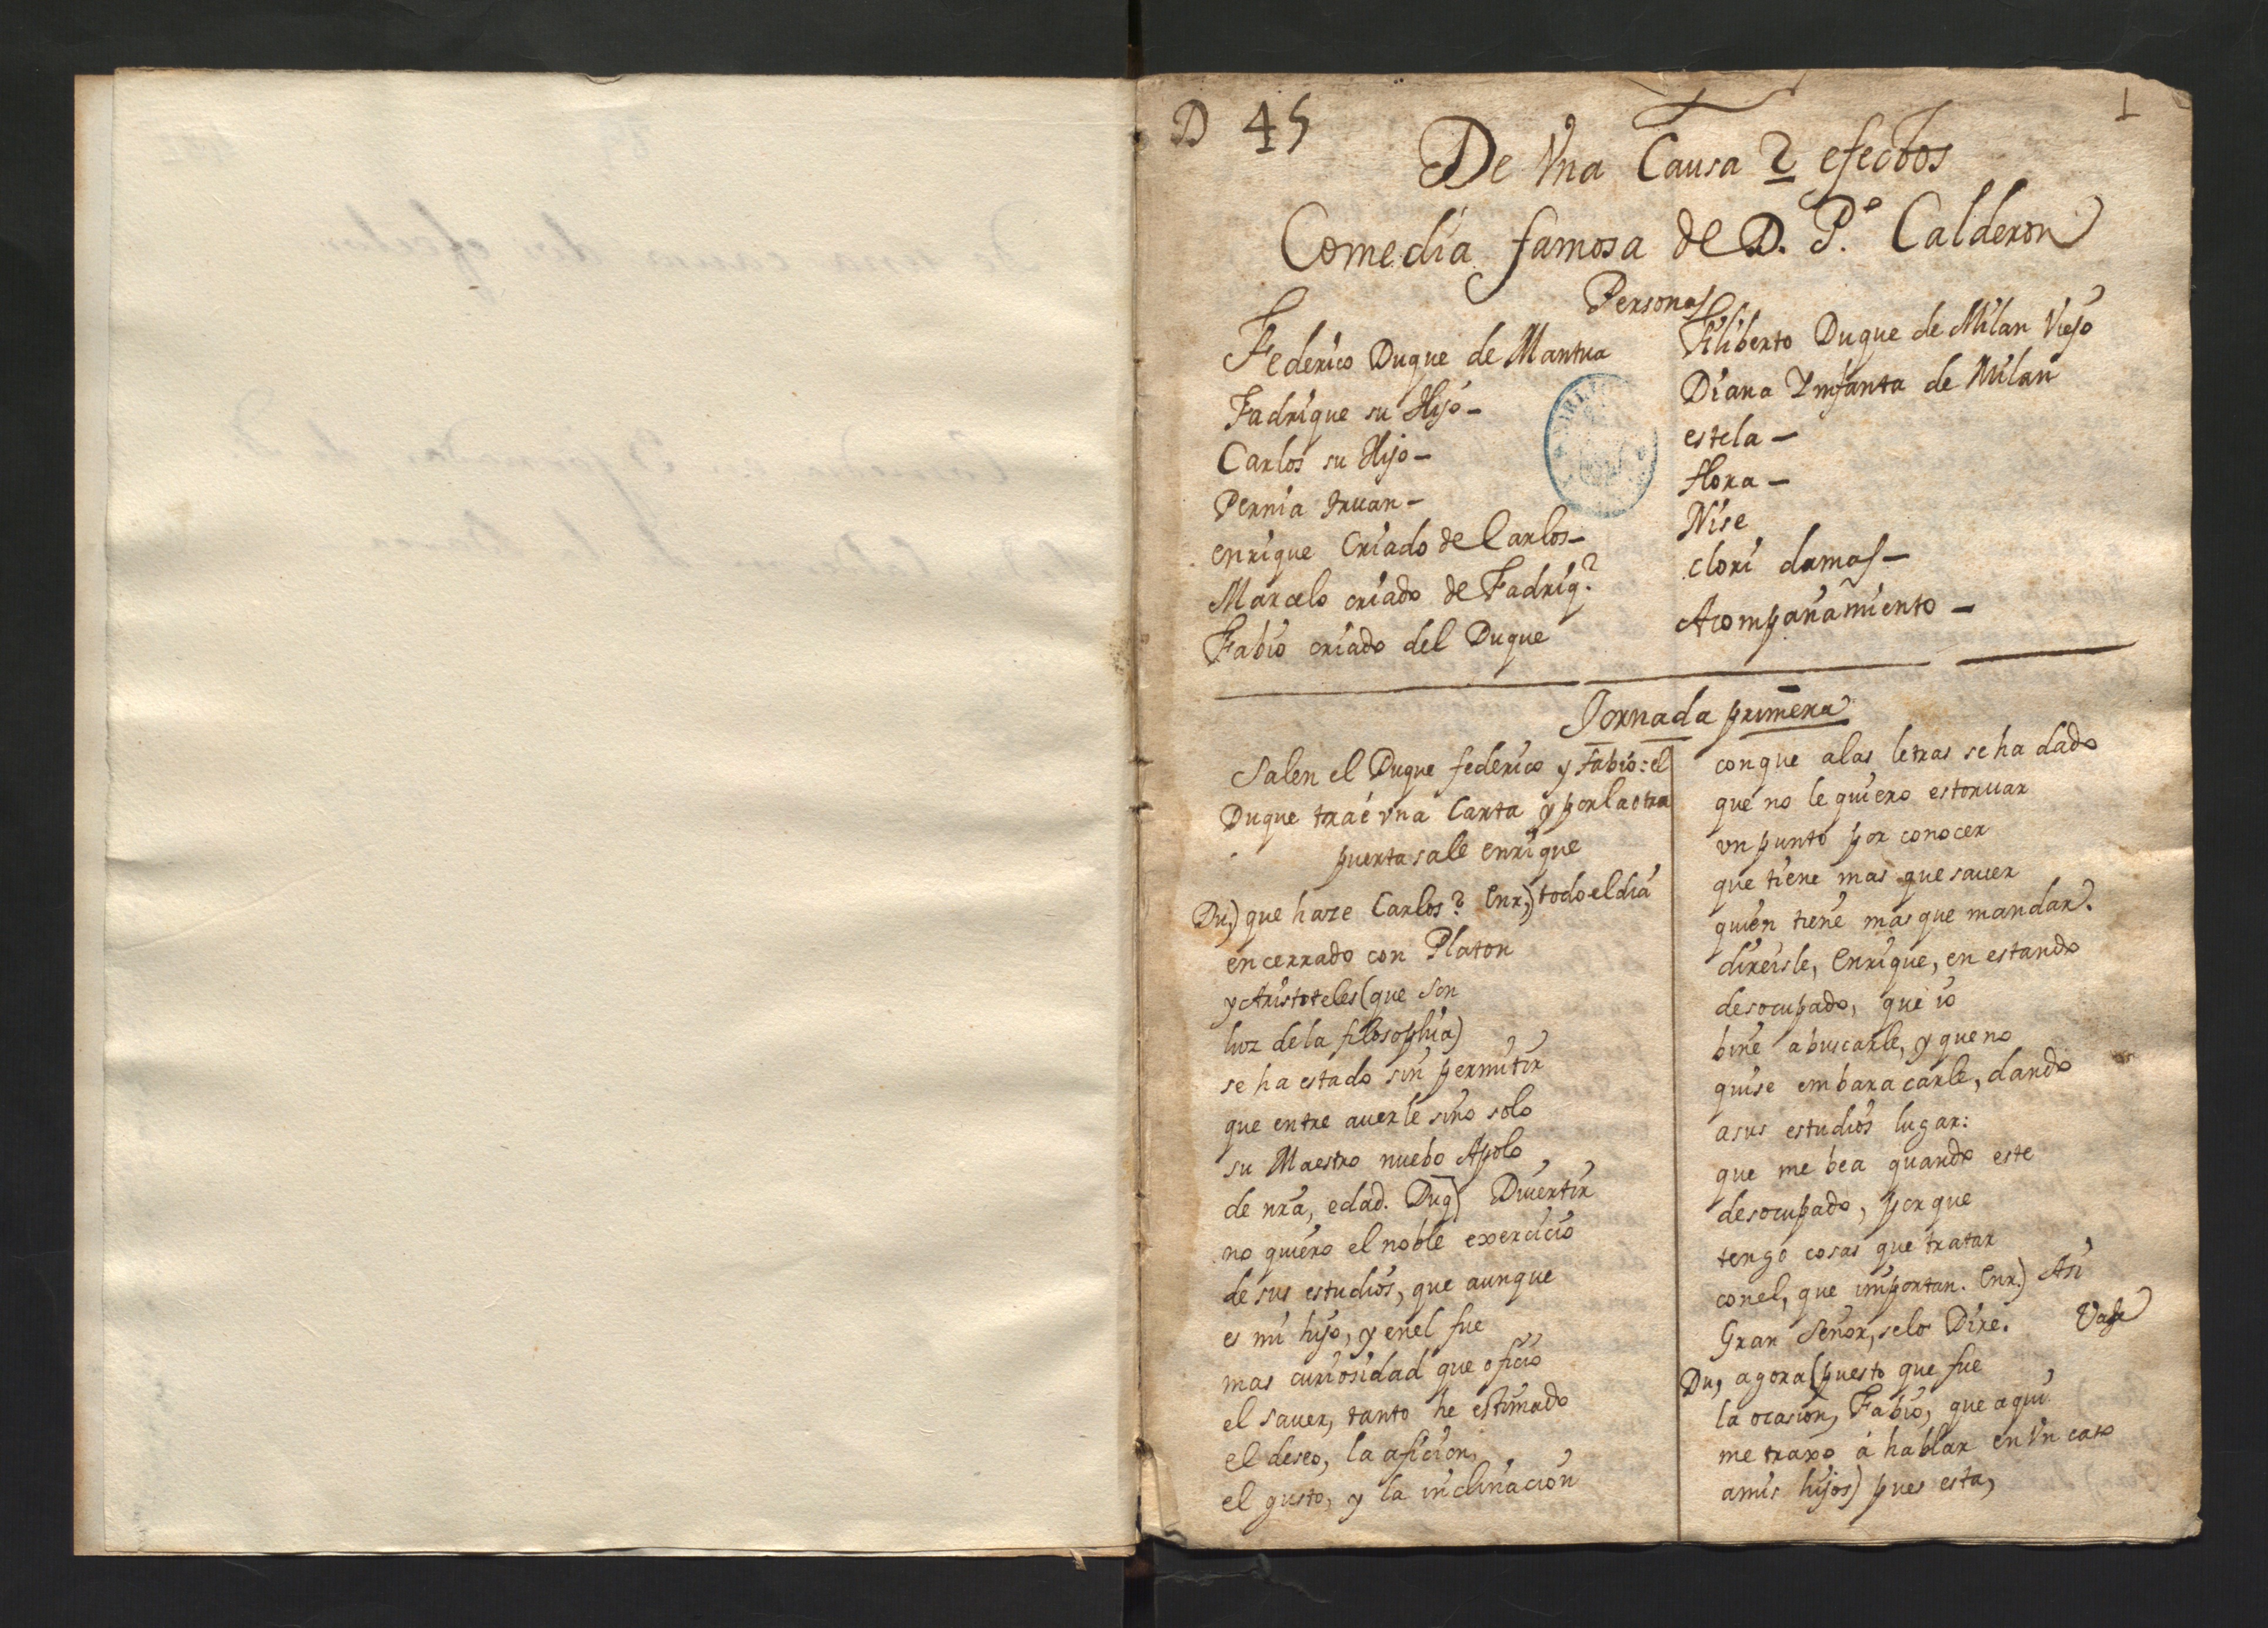 D 45
1
De Vna Causa 2 efectos
Comedia famosa de D. P.º Calderon
Personas
Federico Duque de Mantua
Fadrique su Hijo -
Carlos su Hijo -
Pernia truan -
enrique Criado de Carlos -
Marcelo criado de Fadriq.e
Fabio criado del Duque
Filiberto Duque de Milan Viejo
Diana Ynfanta de Milan
estela -
flora -
Nise
clori damas -
Acompañamiento -
Jornada primera
Salen el Duque federico y fabio: el
Duque trae vna Carta y por la otra
puerta sale enrique
Du,) que haze Carlos? Enr,) todo el dia
encerrado con Platon
y Aristoteles (que son
luz de la filosophia)
se ha estado sin permitir
que entre a uerle sino solo
su Maestro nuebo Apolo
de nra, edad. Duq) Diuertir
no quiero el noble exercicio
de sus estudios, que aunque
es mi hijo, y en el fue
mas curiosidad que oficio
el sauer, tanto he estimado
el deseo, la aficion,
el gusto, y la inclinacion
con que a las letras se ha dado
que no le quiero estoruar
vn punto por conocer
que tiene mas que sauer
quien tiene mas que mandar.
direisle, Enrique, en estando
desocupado, que io
bine a buscarle, y que no
quise embaracarle, dando
a sus estudios lugar:
que me bea quando este
desocupado, porque
tengo cosas que tratar
con el, que importan. Enr.) Asi
Gran Señor, selo Dire. Vase
Du, agora (puesto que fue
la ocasion, Fabio, que aqui
me traxo á hablar en Vn caso
a mis hijos) pues esta,